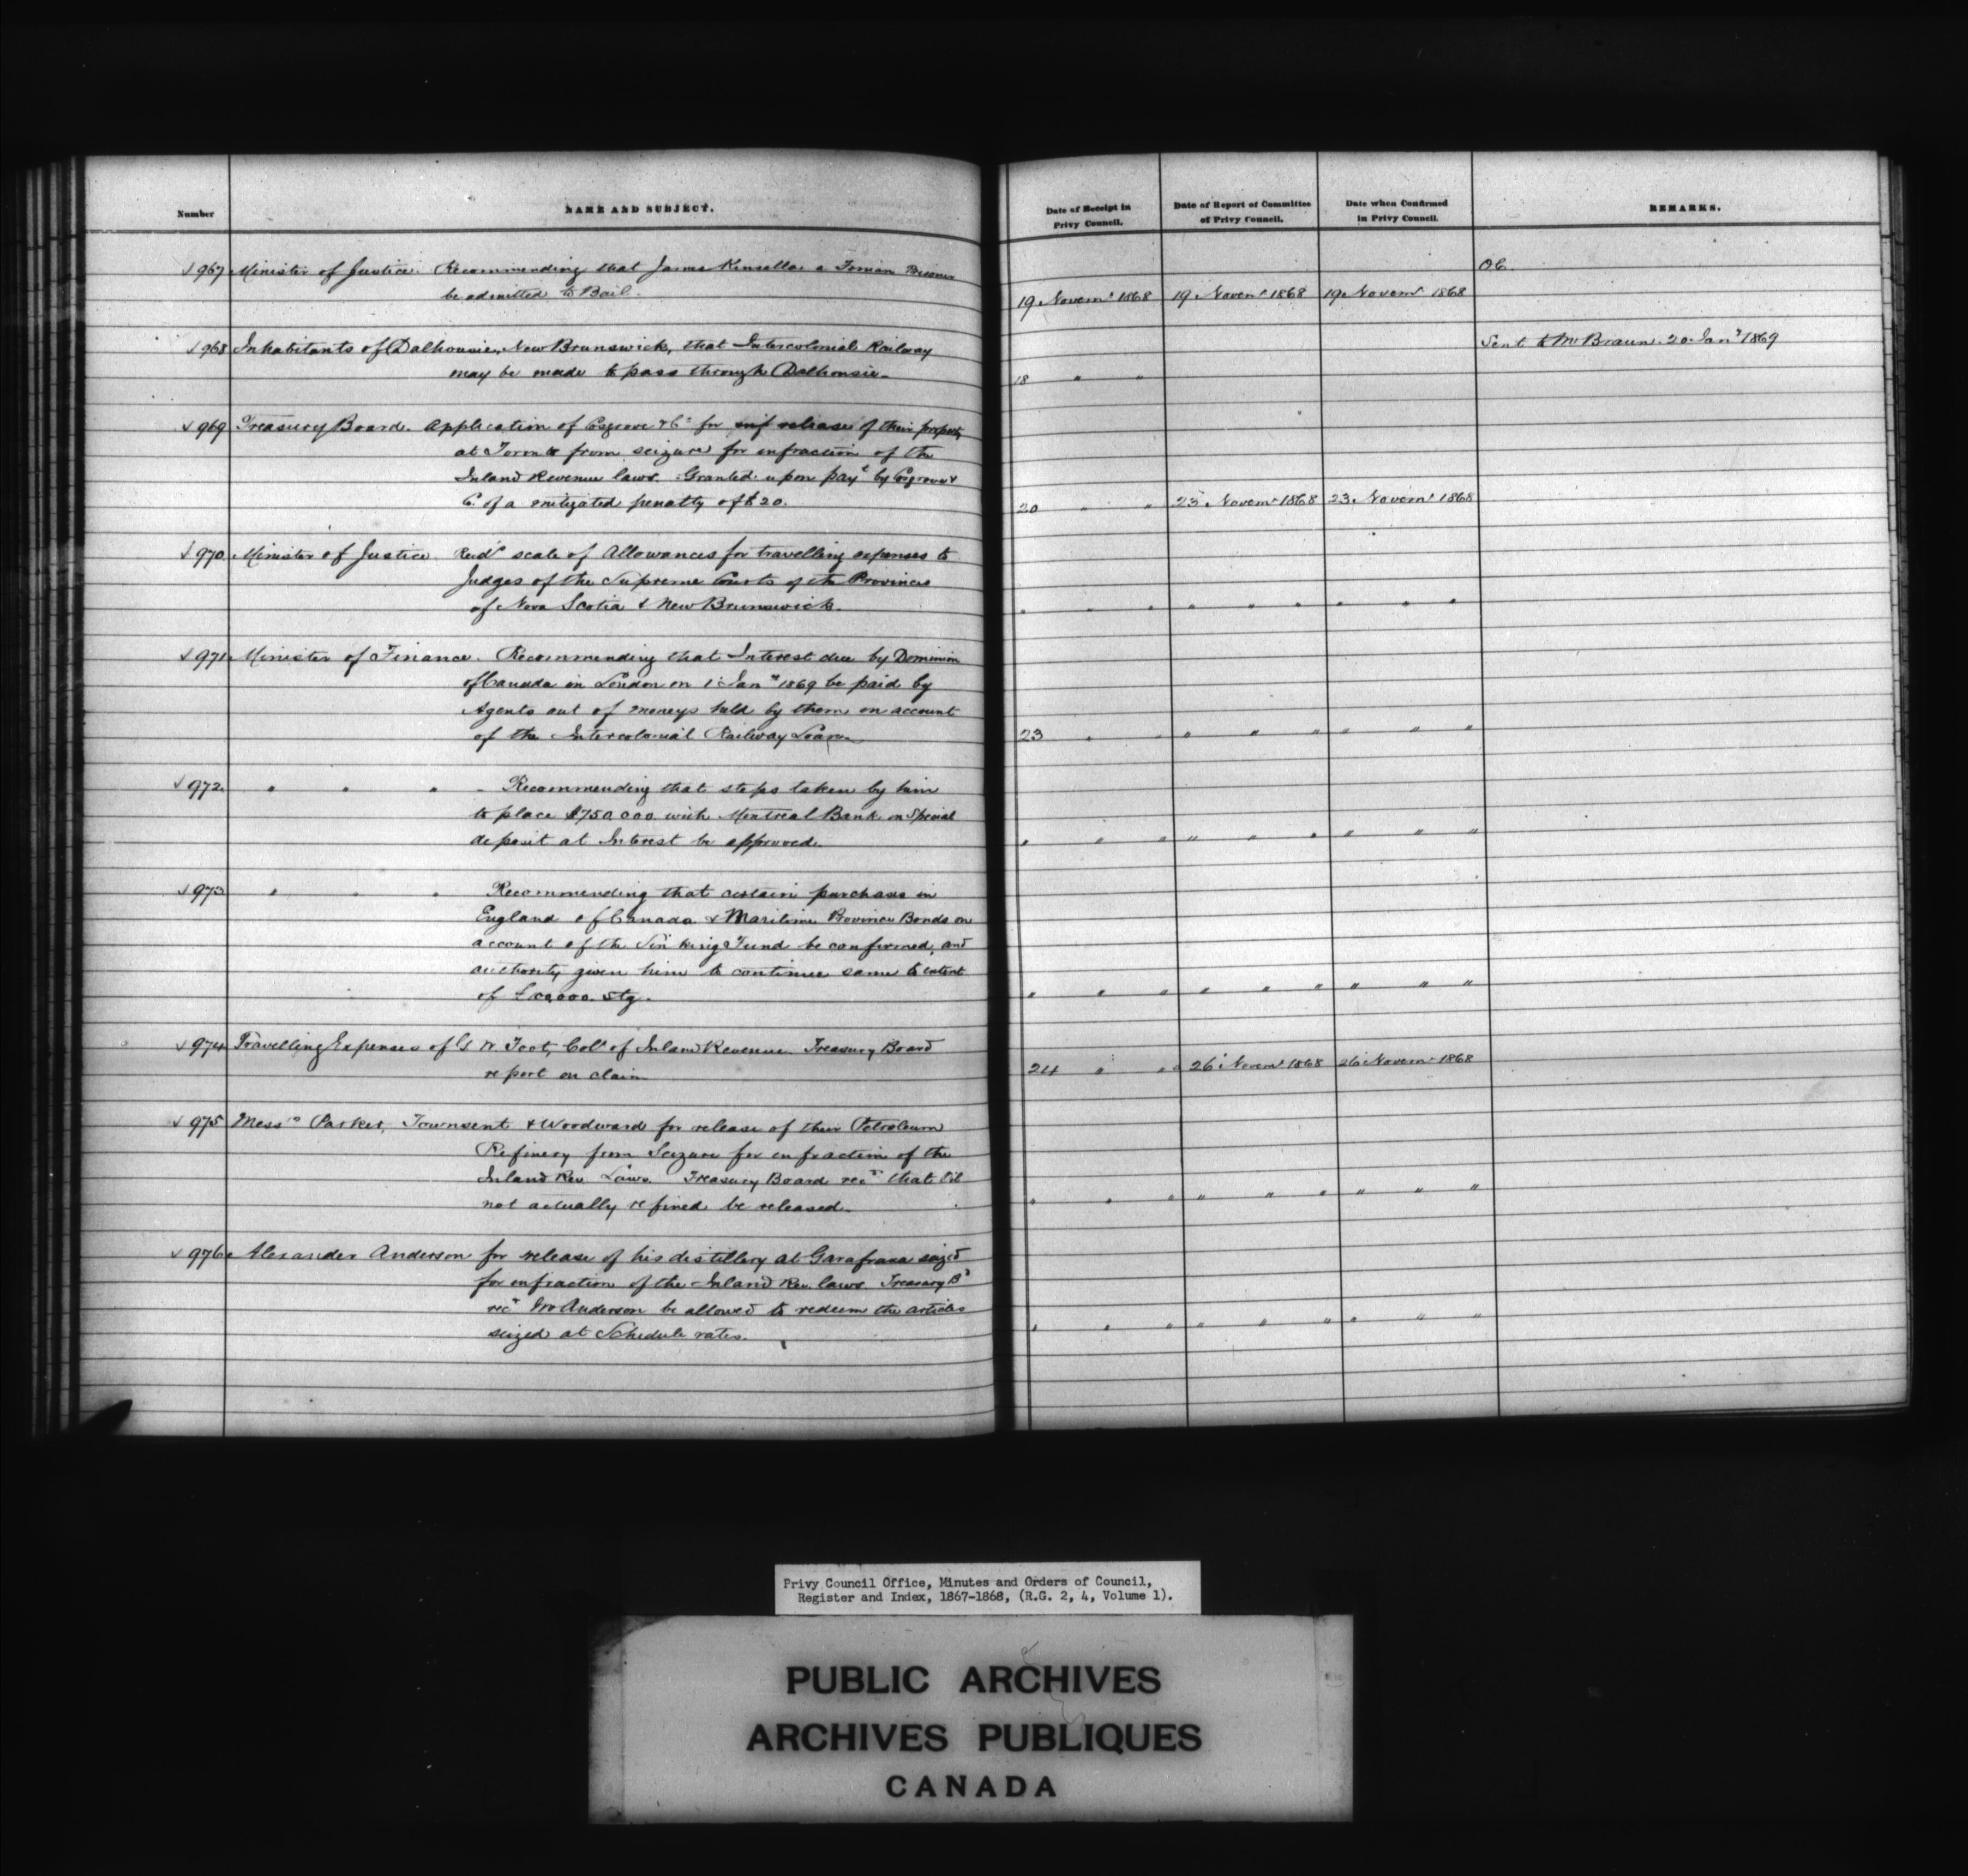 Number
NAME AND SUBJECT.
Date of Receipt in
Privy Council.
Date of Report of Committee
of Privy Council.
Date when Confirmed
in Privy Council.
REMARKS.
√ 967 Minister of Justice. Recommending that James Kinsella a Fenian Prisoner OC.
be admitted to Bail. 19 Novemr 1868 19 Novemr 1868 19 Novemr 1868
√ 968 Inhabitants of Dalhousie, New Brunswick, that Intercolonial Railway Sent to Mr Braun 20 Jany 1869
may be made to pass through Dalhousie. 18 " "
√ 969 Treasury Board. Application of Cosgrove & Co for release of their property
at Toronto from seizure for infraction of the
Inland Revenue laws. Granted upon payt by Cosgrove &
Co of a mitigated penalty of $20. 20 " " 23 Novemr 1868 23 Novemr 1868
√ 970 Minister of Justice scale of Allowances for travelling expenses to
Judges of the Supreme Courts of the Provinces
of Nova Scotia & New Brunswick. " " " " " " " " "
√ 971 Minister of Finance. Recommending that Interest due by Dominion
of Canada in London on 1st Jany 1869 be paid by
Agents out of moneys held by them on account
of the Intercolonial Railway Loan 23 " " " " " " " "
√ 972 " " " - Recommending that steps taken by him
to place $750,000 with Montreal Bank on Special
deposit at Interest be approved. " " " " " " " " "
√ 973 " " " Recommending that certain purchases in
England of Canada & Maritime Province Bonds on
account of the Sinking Fund be confirmed, and
authority given him to continue same to extent
of stg. " " " " " " " " "
√ 974 Travelling Expenses of G W. Foot, Colr of Inland Revenue. Treasury Board
report on claim 24 " " 26 Novemr 1868 26 Novemr 1868
√ 975 Messrs Parker, Townsent & Woodward for release of their Petroleum
Refinery from Seizure for infraction of the
Inland Rev. Laws. Treasury Board recd that Oil
not actually refined be released. " " " " " " " " "
√ 976 Alexander Anderson for release of his distillery at Garafraxa seized
for infraction of the Inland Rev. laws. Treasury Bd
recd Mr Anderson be allowed to redeem the articles
seized at Schedule rates. " " " " " " " " "
Privy Council Office, Minutes and Orders of Council,
Register and Index, 1867-1868, (R.G. 2, 4, Volume 1).
PUBLIC ARCHIVES
ARCHIVES PUBLIQUES
CANADA